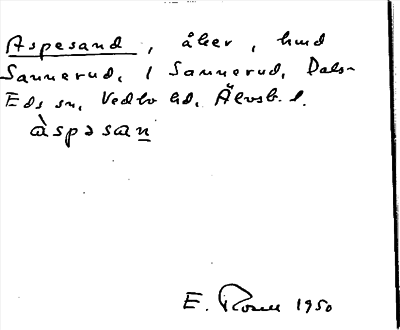 Aspesand, åker, hmd
Sannerud, 1 Sannerud, Dals-
Eds sn, Vedbo hd, Älvsb. l.
àspəsan
E. 1950